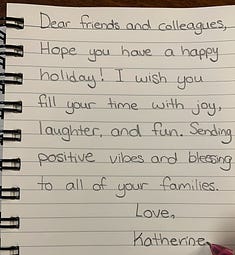 Dear friends and colleagues,
Hope you have a happy
holiday! I wish you
fill your time with joy,
laughter, and fun. Sending
positive vibes and blessing
to all of your families.
Love,
Katherine